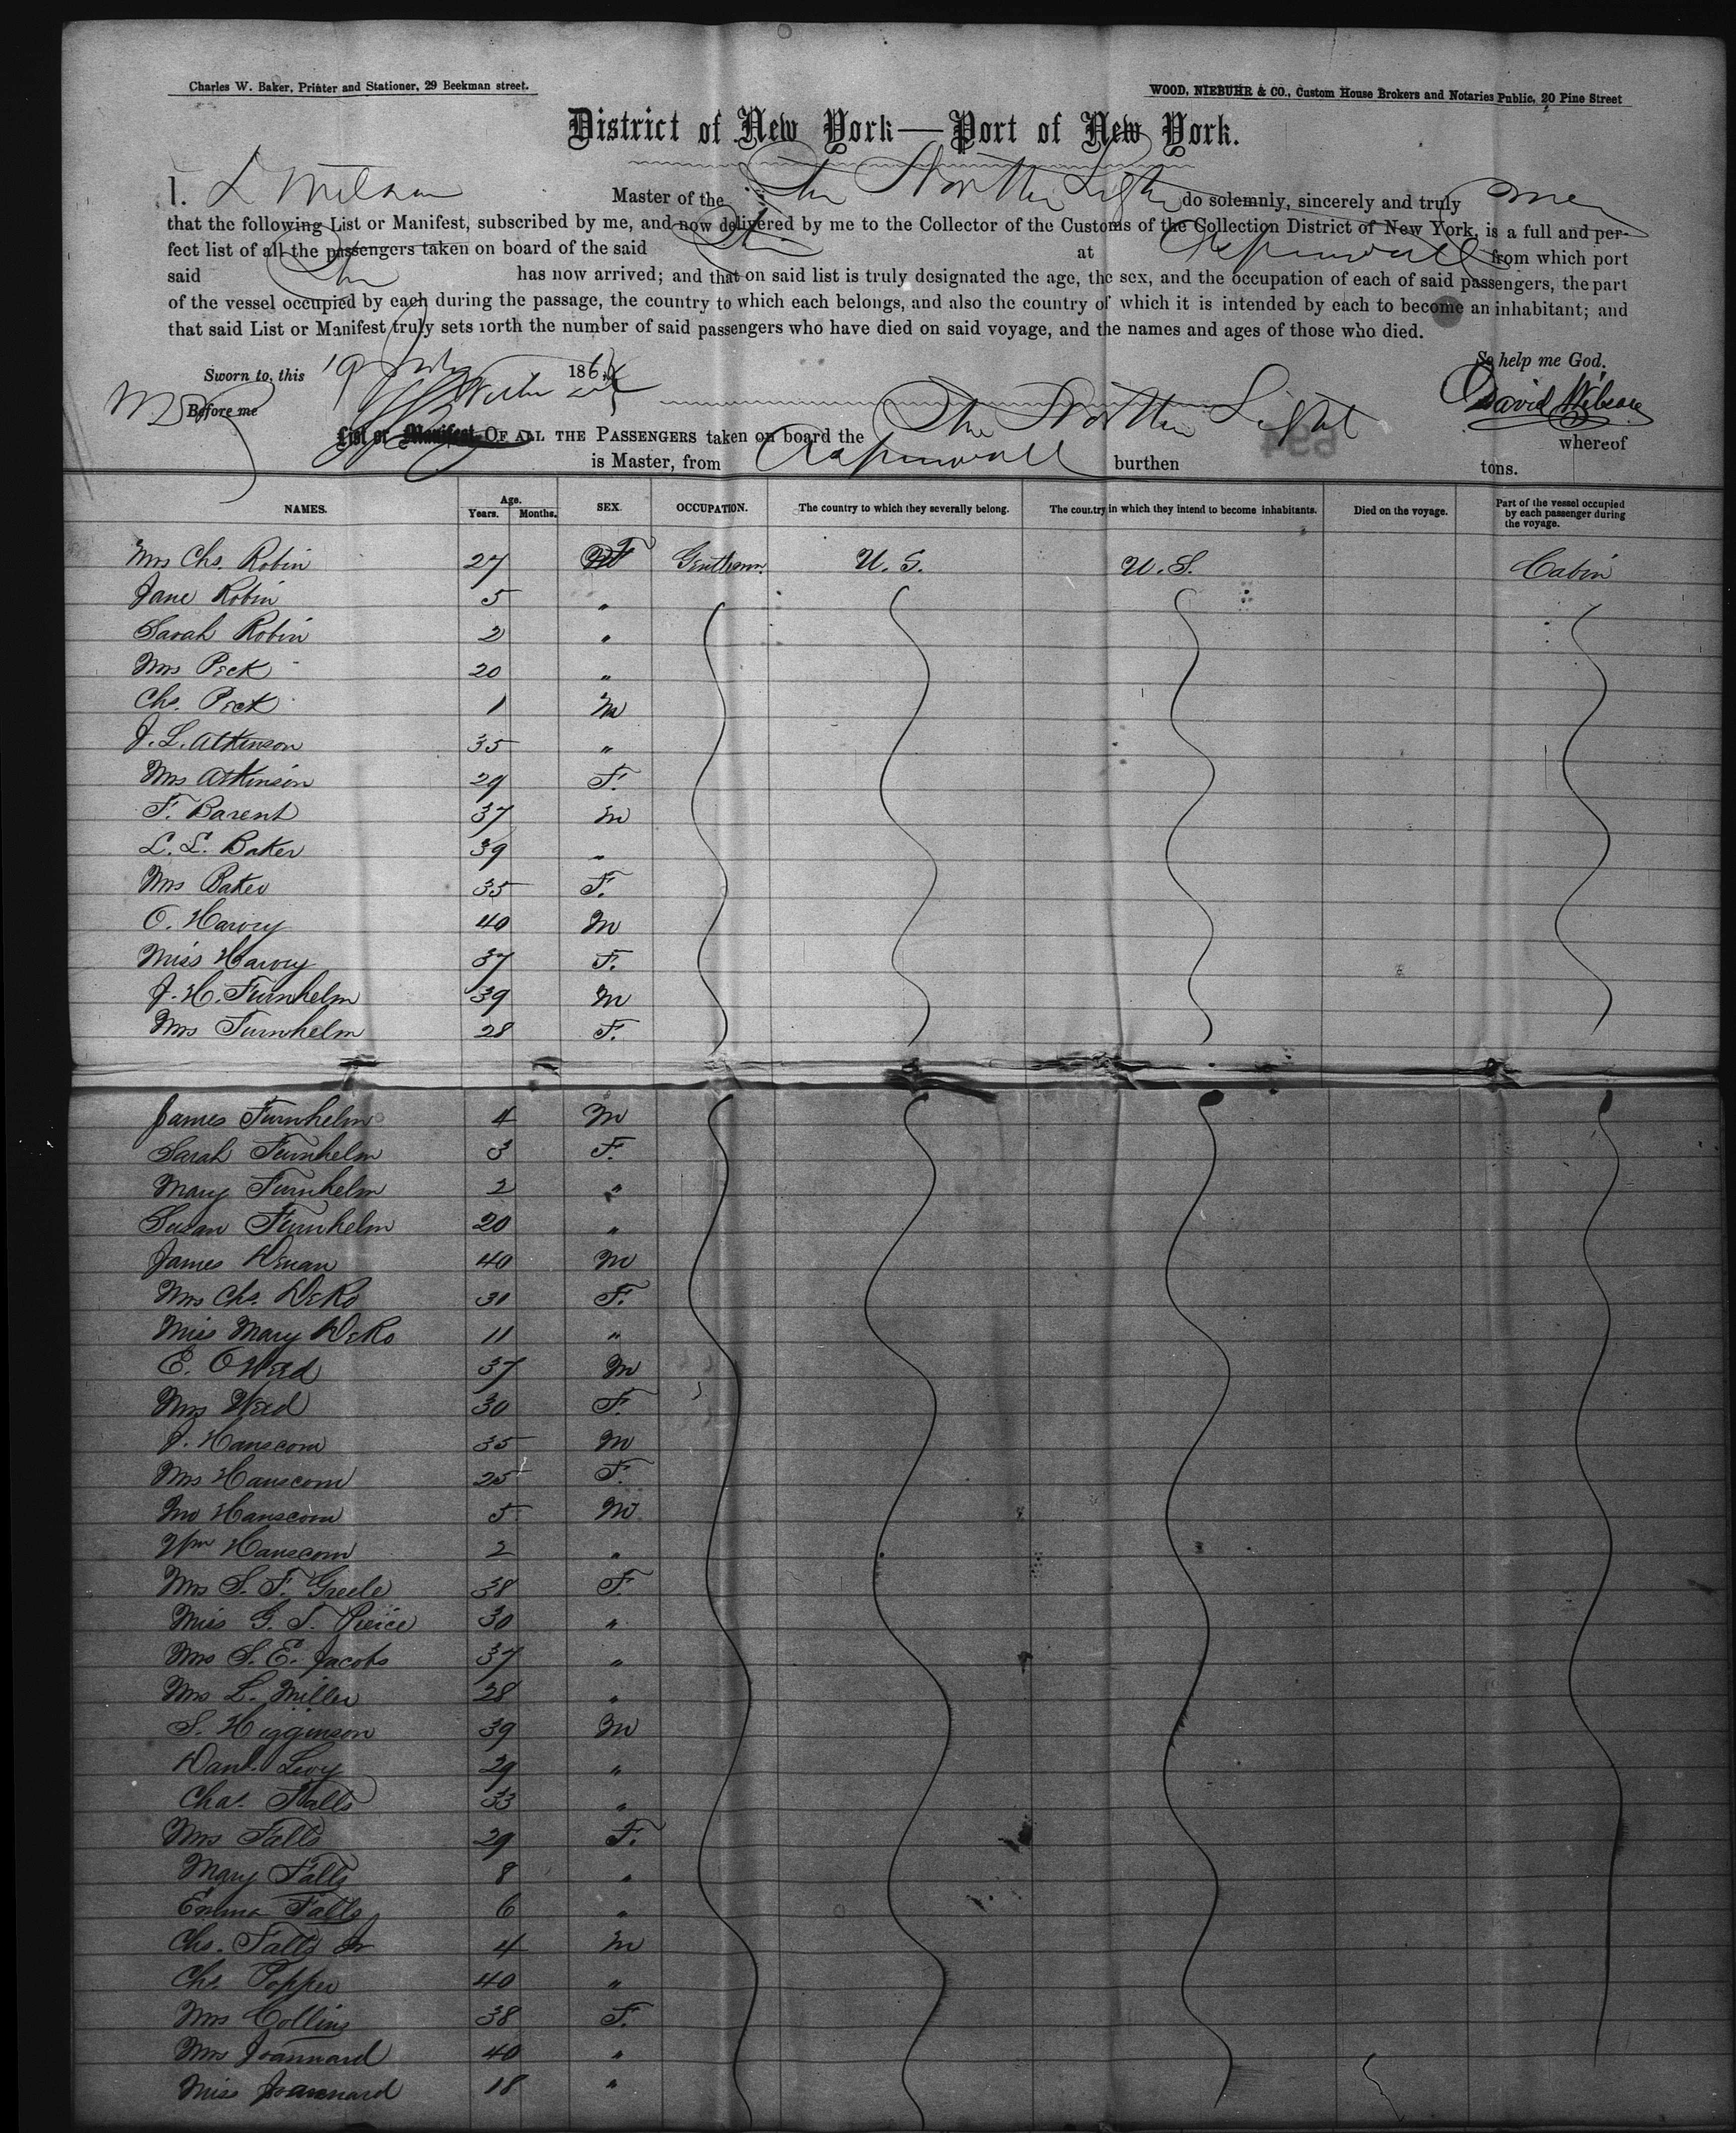 Charles W. Baker, Printer and Stationer, 29 Beekman street.
WOOD, NIEBUHR & CO., Custom House Brokers and Notaries Public, 20 Pine Street
District of New York—Port of New York.
I. Master of the Str North Light do solemnly, sincerely and truly
that the following List or Manifest, subscribed by me, and now delivered by me to the Collector of the Customs of the Collection District of New York, is a full and per-
fect list of all the passengers taken on board of the said Str at Aspinwall from which port
said Str has now arrived; and that on said list is truly designated the age, the sex, and the occupation of each of said passengers, the part
of the vessel occupied by each during the passage, the country to which each belongs, and also the country of which it is intended by each to become an inhabitant; and
that said List or Manifest truly sets forth the number of said passengers who have died on said voyage, and the names and ages of those who died.
So help me God.
Sworn to, this 19 July 186
Before me
David Wilson
List or Manifest OF ALL THE PASSENGERS taken on board the Str North Light whereof
is Master, from Aspinwall burthen tons.
NAMES. Age. Years. Months. SEX. OCCUPATION. The country to which they severally belong. The country in which they intend to become inhabitants. Died on the voyage. Part of the vessel occupied by each passenger during the voyage.
Mrs Chs. Robin 27 F Gentleman U. S. U. S. Cabin
Jane Robin 5 "
Sarah Robin 2 "
Mrs Peck 20 "
Chs. Peck 1 M
J. L. Atkinson 35 "
Mrs Atkinson 29 F.
F. Barent 37 M
L. L. Baker 39 "
Mrs Baker 35 F.
O. Harvey 40 M
Miss Harvey 37 F.
J. H. Furnhelm 39 M
Mrs Furnhelm 28 F.
James Furnhelm 4 M
Sarah Furnhelm 3 F.
Mary Furnhelm 2 "
Susan Furnhelm 20 "
James 40 M
Mrs Chs. DeRo 31 F.
Miss Mary DeRo 11 "
E. O Weed 37 M
Mrs Weed 30 F.
J. Hanscom 35 M
Mrs Hanscom 25 F.
Hanscom 5 M
Wm Hanscom 2 "
Mrs S. F. Greele 38 F.
Miss G. S. Peirce 30 "
Mrs S. E. Jacobs 37 "
Mrs L. Miller 28 "
S. Higginson 39 M
Danl. Levy 29 "
Chas. Falls 33 "
Mrs Falls 29 F.
Mary Falls 8 "
Emma Falls 6 "
Chs. Falls Jr 4 M
Chs. Popper 40 "
Mrs Collins 38 F.
Mrs Joannard 40 "
Miss Joannard 18 "